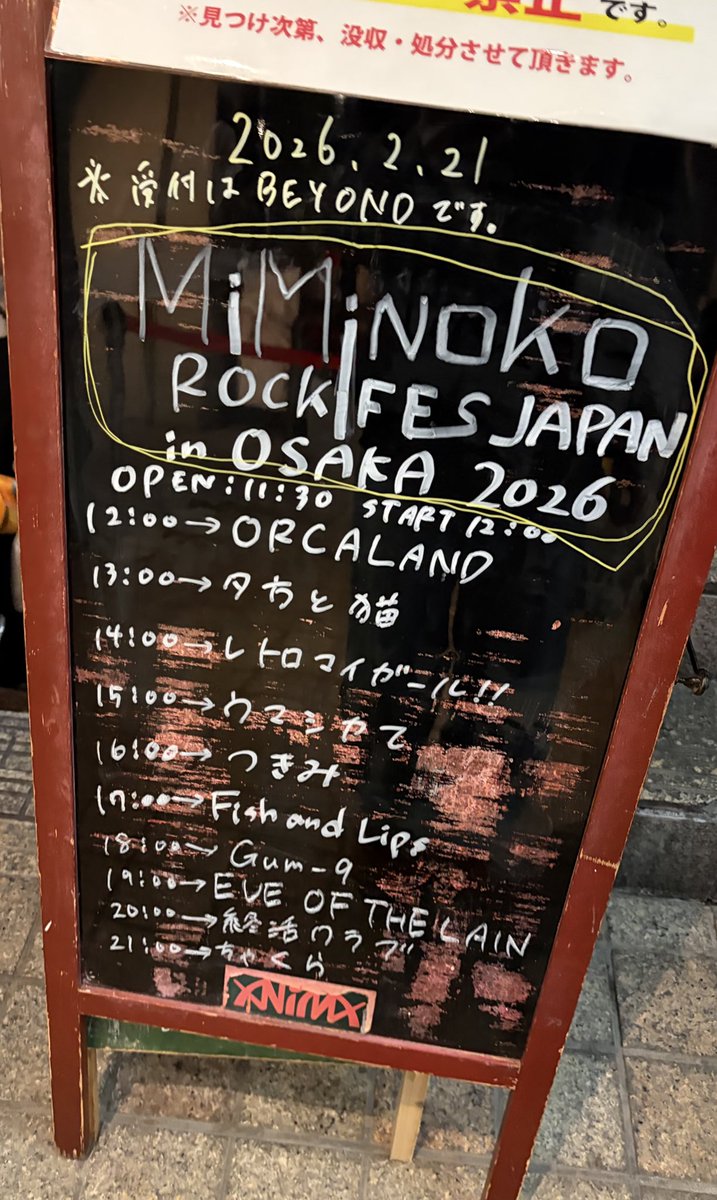 禁止です。
※見つけ次第、没収・処分させて頂きます。
2026.2.21
※受付はBEYONDです。
MiMiNOKO
ROCK FES JAPAN
in OSAKA 2026
OPEN:11:30 START 12:00
12:00→ORCALAND
13:00→夕方と猫
14:00→レトロマイガール!!
15:00→ウマシカて
16:00→つきみ
17:00→Fish and Lips
18:00→Gum-9
19:00→EVE OF THE LAIN
20:00→終活クラブ
21:00→ちゃくら
ANIMA